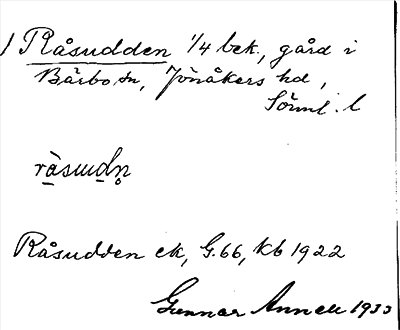 / Råsudden 1/4 bek., gård i
Bärbo sn, Jönåkers hd,
Sörml. l
Råsudden ek, G.66, kb 1922
Gunnar Annell 1933